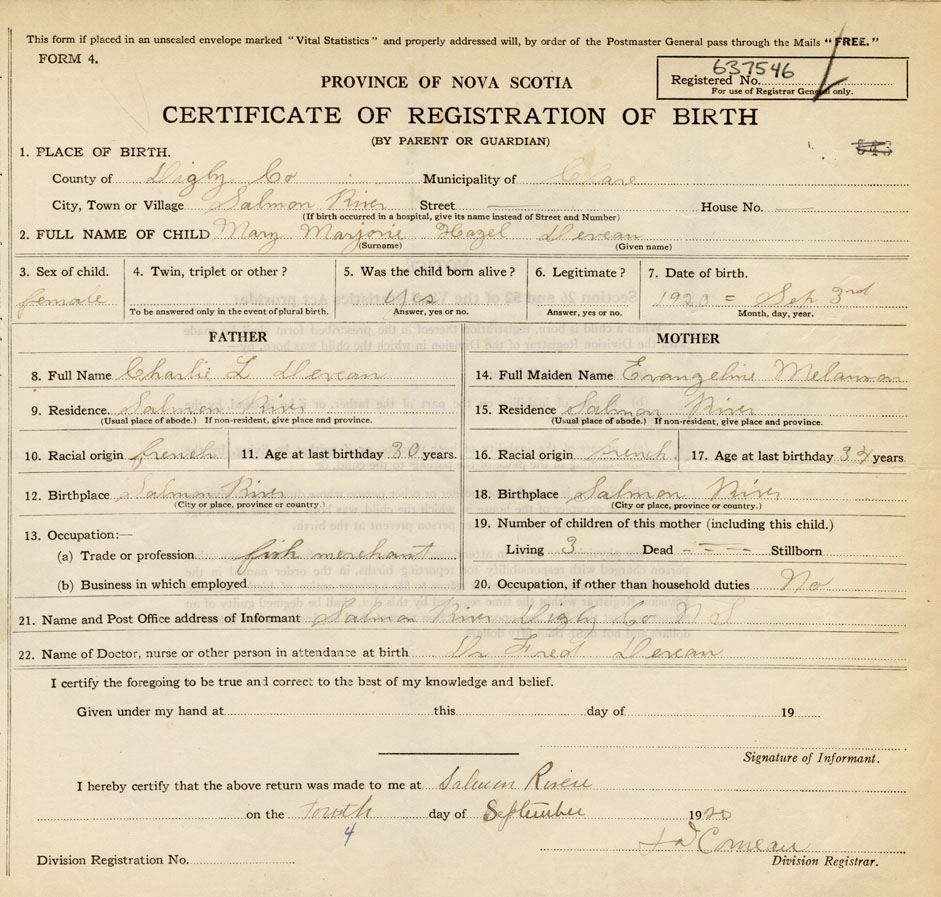 This form if placed in an unsealed envelope marked "Vital Statistics" and properly addressed will, by order of the Postmaster General pass through the Mails "FREE."
FORM 4.
637546
Registered No.
For use of Registrar General only.
PROVINCE OF NOVA SCOTIA
CERTIFICATE OF REGISTRATION OF BIRTH
(BY PARENT OR GUARDIAN)
1. PLACE OF BIRTH.
County of Digby Co Municipality of Clare
City, Town or Village Salmon River Street House No.
(If birth occurred in a hospital, give its name instead of Street and Number)
2. FULL NAME OF CHILD Mary Marjorie Hazel Deveau
(Surname) (Given name)
3. Sex of child. 4. Twin, triplet or other? 5. Was the child born alive? 6. Legitimate? 7. Date of birth.
female Yes 1920 = Sep 3rd
To be answered only in the event of plural birth. Answer, yes or no. Answer, yes or no. Month, day, year.
FATHER MOTHER
8. Full Name Charlie L Deveau 14. Full Maiden Name Evangeline Melanson
9. Residence. Salmon River 15. Residence Salmon River
(Usual place of abode.) If non-resident, give place and province. (Usual place of abode.) If non-resident, give place and province.
10. Racial origin french 11. Age at last birthday 30 years. 16. Racial origin french 17. Age at last birthday years
12. Birthplace Salmon River 18. Birthplace Salmon River
(City or place, province or country.) (City or place, province or country.)
13. Occupation:— 19. Number of children of this mother (including this child.)
(a) Trade or profession fish merchant Living 3 Dead - - - - Stillborn
(b) Business in which employed 20. Occupation, if other than household duties No
21. Name and Post Office address of Informant Salmon River Digby Co N S
22. Name of Doctor, nurse or other person in attendance at birth Dr Fred Deveau
I certify the foregoing to be true and correct to the best of my knowledge and belief.
Given under my hand at this day of 19
Signature of Informant.
I hereby certify that the above return was made to me at Salmon River
on the fourth day of September 1920
4
Comeau
Division Registration No. Division Registrar.